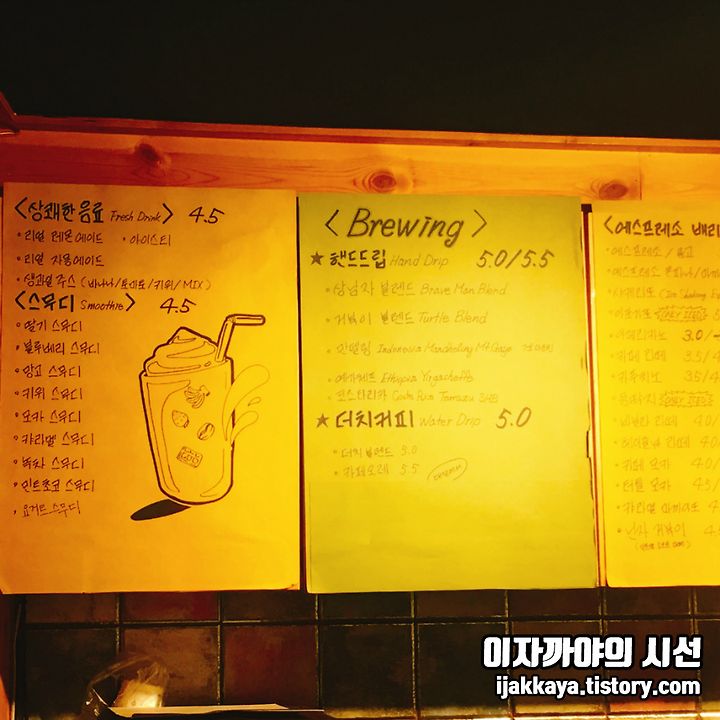 <상쾌한 음료 Fresh Drink> 4.5
• 리얼 레몬에이드 • 아이스티
• 리얼 자몽에이드
• 생과일 주스 (바나나/토마토/키위/MIX)
<스무디 Smoothie> 4.5
• 딸기 스무디
• 블루베리 스무디
• 망고 스무디
• 키위 스무디
• 모카 스무디
• 캬라멜 스무디
• 녹차 스무디
• 민트초코 스무디
• 요거트 스무디
<Brewing>
★ 핸드드립 Hand Drip 5.0/5.5
• 상남자 블렌드 Brave Man Blend
• 거북이 블렌드 Turtle Blend
• 만델링 Indonesia Mandheling Mt.
• 예가체프 Ethiopia Yirgacheffe
• 코스타리카 Costa Rica Tarrazu SHB
★ 더치커피 Water Drip 5.0
• 더치 블렌드 5.0
• 카페오레 5.5
<에스프레소 베리
• 에스프레소 /
• 에스프레소
• 아메리카노 3.0/
• 카페 라떼 3.5/
• 카푸치노 3.5/4
• 바닐라 라떼 4.0/
• 라떼 4.0/
• 카페 모카 4.0/
• 더블 모카 4.5/
• 캬라멜 마끼아또 4
• 닌자 거북이 4.
이자까야의 시선
ijakkaya.tistory.com